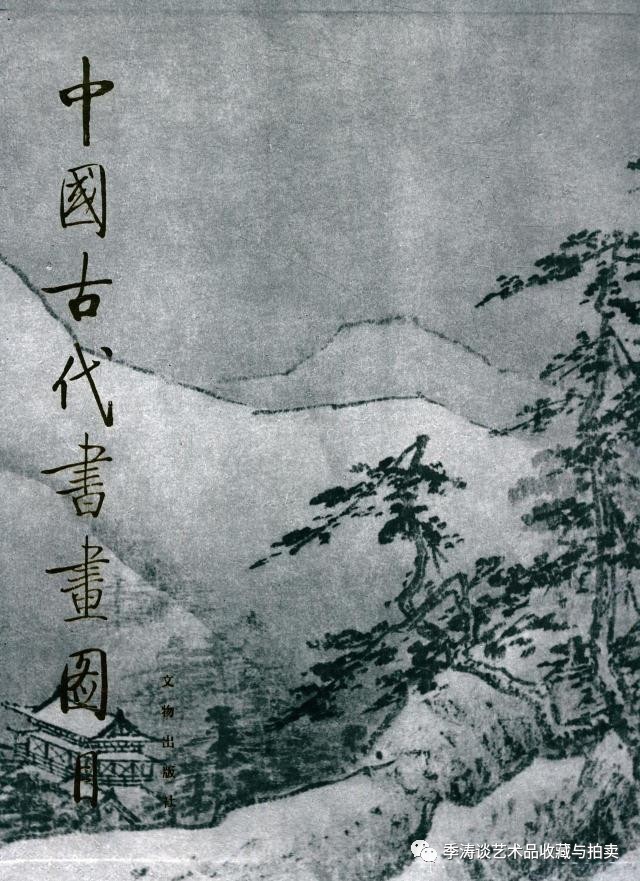 中國古代書畫图目
文物出版社
季涛谈艺术品收藏与拍卖